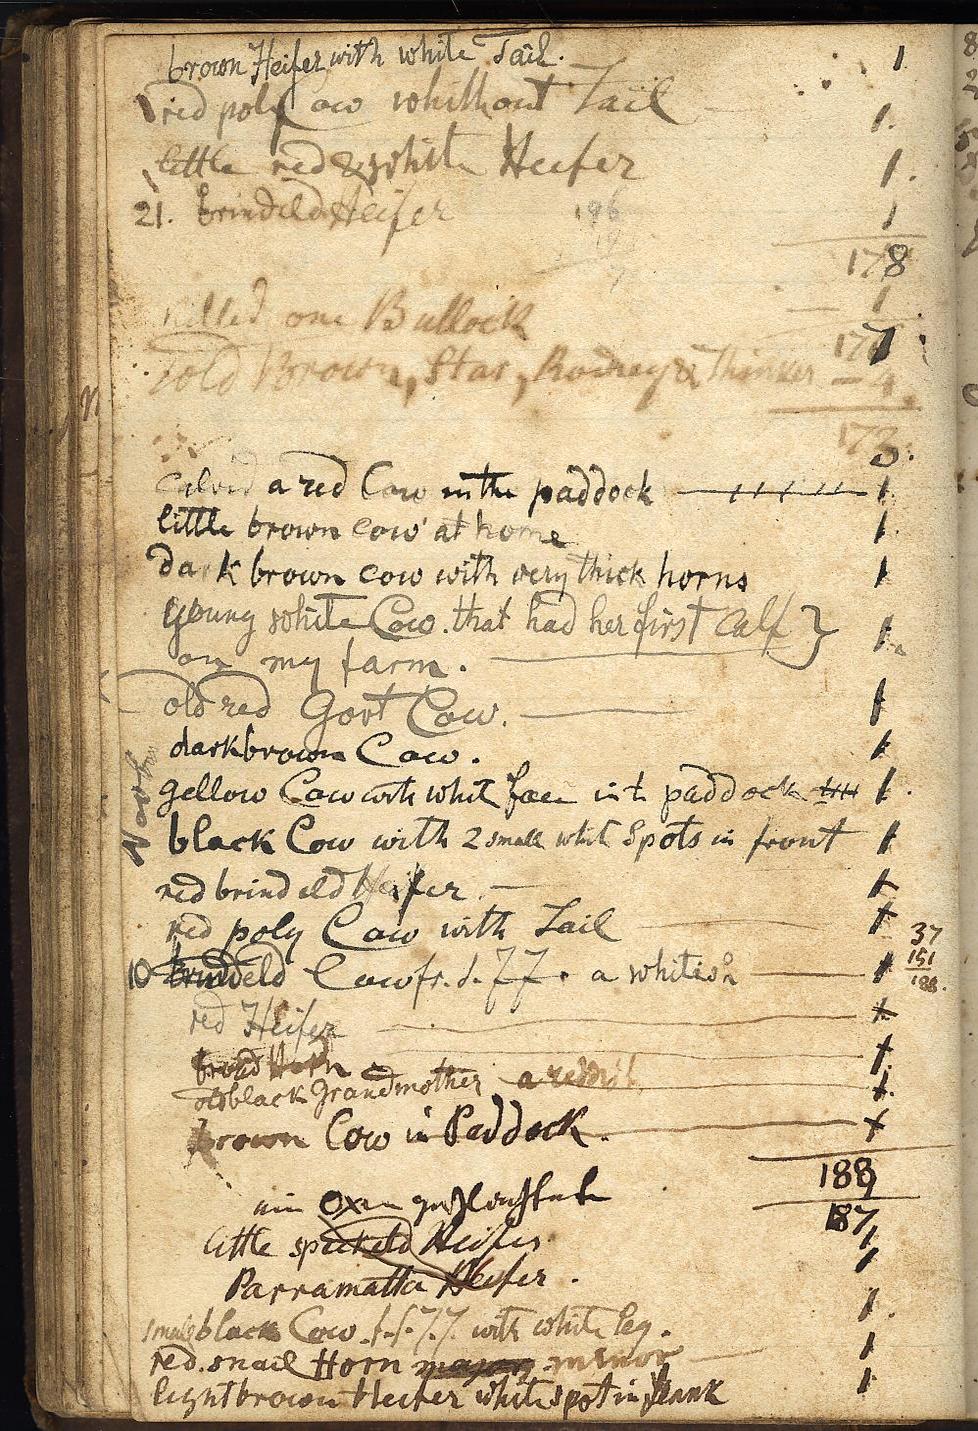 brown Heifer with white Tail. 1
red poly Cow whithout Tail 1.
little red & white Heifer 1.
21. brindeld Heifer 196 1
178
killed one Bullock — 1
177
Sold Brown, Star, Rodney & — 4
173.
Calved a red Cow in the paddock 1
little brown Cow at home 1.
dark brown cow with very thick horns 1
young white Cow. that had her first Calf } 1.
on my farm.
old red Govt Cow. 1
dark brown Cow. 1
yellow Cow with whit face in t paddock 1.
black Cow with 2 small whit Spots in front 1
red brindeld Heifer 1
red poly Cow with Tail 1
37
10 brindeld Cow fr. d. 77. a whitish 1
151
188.
red Heifer 1
broad Horn 1
old black Grandmother a 1.
brown Cow in Paddock. 1
188
Oxen
187
little Heifer 1
Parramatta Heifer. 1
small black Cow f.f. 77 with white leg. 1.
red snail Horn minor 1
light brown Heifer white spot in flank 1